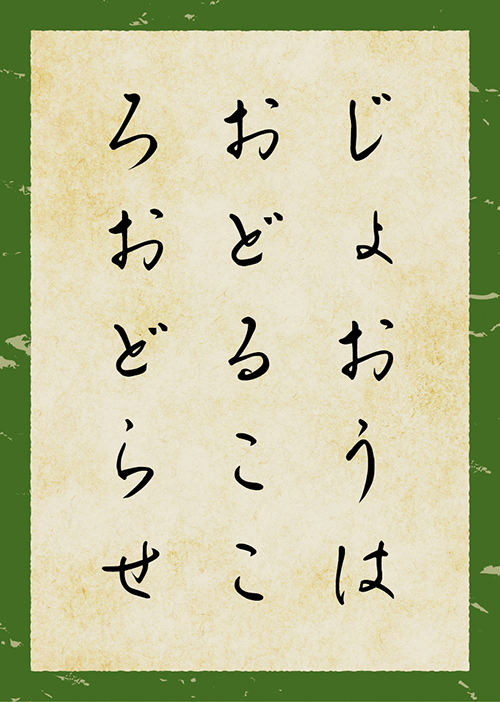 じょおうは
おどるここ
ろおどらせ